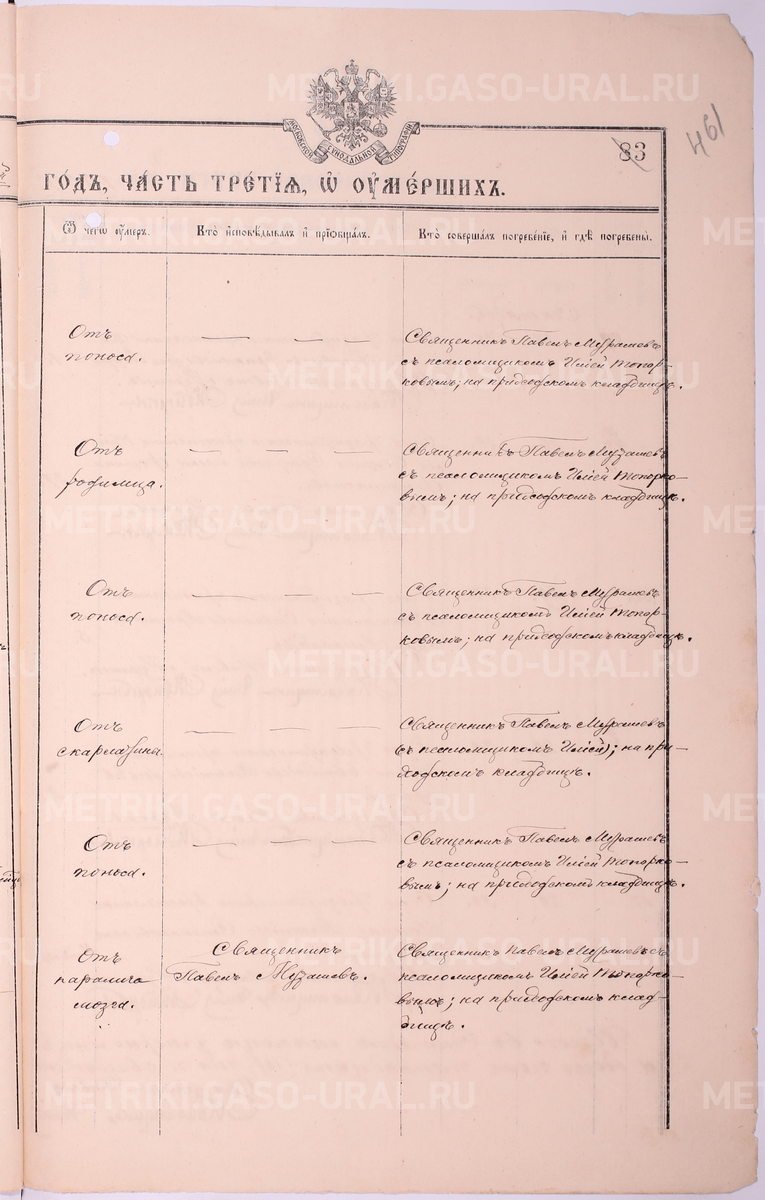 METRIKI.GASO-URAL.RU
МОСКОВСКОЙ СѴНОДАЛЬНОЙ ТИПОГРАФІИ
83
461
ГО́ДЪ, ЧА́СТЬ ТРЕ́ТІѦ, Ѡ҆ ОУ҆МЕ́РШИХЪ.
Ѿ чегѡ̀ ᲂу҆́меръ.
Кто̀ и҆сповѣ́дывалъ и҆ прїѡбща́лъ.
Кто̀ соверша́лъ погребе́нїе, и҆ гдѣ̀ погребены̀.
Отъ
поноса.
Священникъ Павелъ
съ псаломщикомъ Илiей Топор-
ковымъ; на приходскомъ кладбищѣ.
Отъ
родимца.
Священникъ Павелъ
съ псаломщикомъ Илiей Топорко-
вымъ; на приходскомъ кладбищѣ.
Отъ
поноса.
Священникъ Павелъ
съ псаломщикомъ Илiей Топор-
ковымъ; на приходскомъ кладбищѣ.
Отъ
скарлатина.
Священникъ Павелъ
съ псаломщикомъ Илiей; на при-
ходскомъ кладбищѣ.
Отъ
поноса.
Священникъ Павелъ
съ псаломщикомъ Илiей Топорко-
вымъ; на приходскомъ кладбищѣ.
Отъ
паралича
мозга.
Священникъ
Павелъ
Священникъ Павелъ съ
псаломщикомъ Илiей Топорко-
вымъ; на приходскомъ клад-
бищѣ.